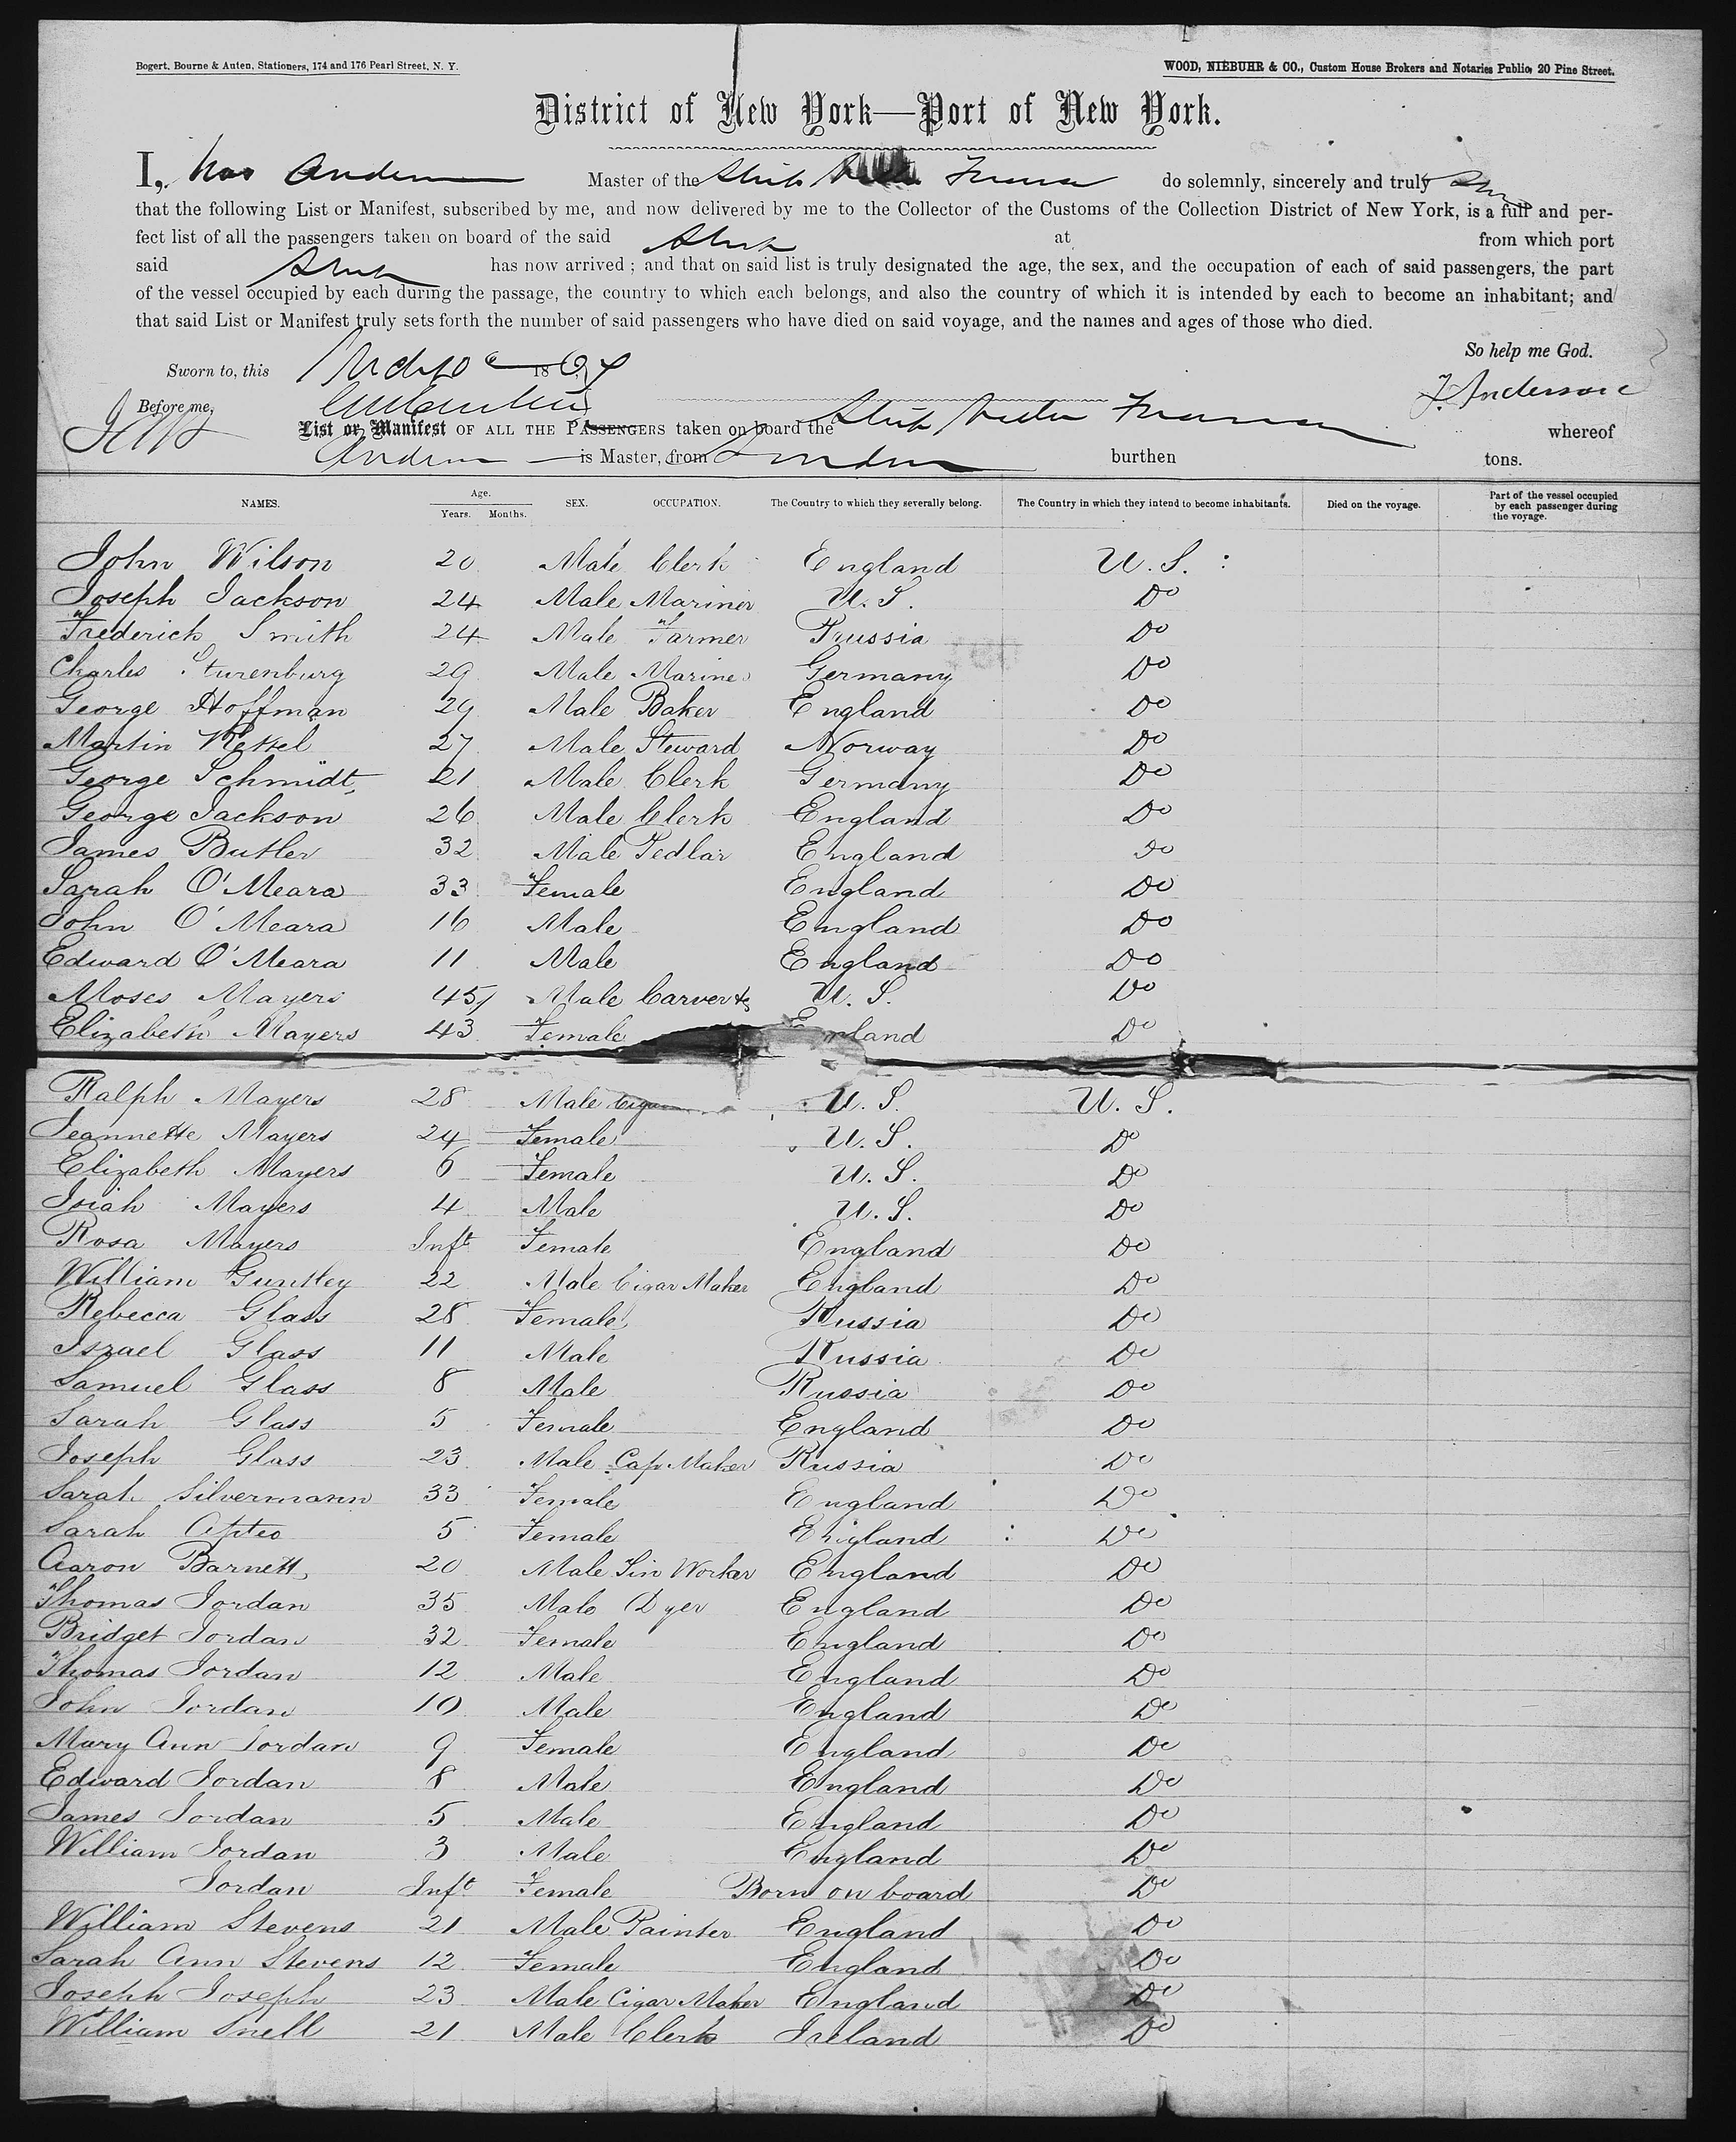 Bogert, Bourne & Auten, Stationers, 174 and 176 Pearl Street, N. Y. WOOD, NIEBUHR & CO., Custom House Brokers and Notaries Public, 20 Pine Street.
District of New York—Port of New York.
I, Master of the Ship do solemnly, sincerely and truly
that the following List or Manifest, subscribed by me, and now delivered by me to the Collector of the Customs of the Collection District of New York, is a full and per-
fect list of all the passengers taken on board of the said Ship at from which port
said Ship has now arrived; and that on said list is truly designated the age, the sex, and the occupation of each of said passengers, the part
of the vessel occupied by each during the passage, the country to which each belongs, and also the country of which it is intended by each to become an inhabitant; and
that said List or Manifest truly sets forth the number of said passengers who have died on said voyage, and the names and ages of those who died.
So help me God.
Sworn to, this 18
J. Anderson
Before me,
List or Manifest OF ALL THE PASSENGERS taken on board the Ship whereof
is Master, from London burthen tons.
NAMES. Age. Years. Months. SEX. OCCUPATION. The Country to which they severally belong. The Country in which they intend to become inhabitants. Died on the voyage. Part of the vessel occupied by each passenger during the voyage.
John Wilson 20 Male Clerk England U. S.
Joseph Jackson 24 Male Mariner U. S. Do
Frederick Smith 24 Male Farmer Prussia Do
Charles Sturenburg 29 Male Mariner Germany Do
George Hoffman 29 Male Baker England Do
Martin 27 Male Steward Norway Do
George Schmidt 21 Male Clerk Germany Do
George Jackson 26 Male Clerk England Do
James Butler 32 Male Pedlar England Do
Sarah O'Meara 33 Female England Do
John O'Meara 16 Male England Do
Edward O'Meara 11 Male England Do
Moses Mayers 45 Male Carver &c U. S. Do
Elizabeth Mayers 43 Female England Do
Ralph Mayers 28 Male Cigar U. S. U. S.
Jeannette Mayers 24 Female U. S. Do
Elizabeth Mayers 6 Female U. S. Do
Isiah Mayers 4 Male U. S. Do
Rosa Mayers Inft Female England Do
William Guntley 22 Male Cigar Maker England Do
Rebecca Glass 28 Female Russia Do
Iszael Glass 11 Male Russia Do
Samuel Glass 8 Male Russia Do
Sarah Glass 5 Female England Do
Joseph Glass 23 Male Cap Maker Russia Do
Sarah Silvermann 33 Female England Do
Sarah 5 Female England Do
Aaron Barnett 20 Male Tin Worker England Do
Thomas Jordan 35 Male Dyer England Do
Bridget Jordan 32 Female England Do
Thomas Jordan 12 Male England Do
John Jordan 10 Male England Do
Mary Ann Jordan 9 Female England Do
Edward Jordan 8 Male England Do
James Jordan 5 Male England Do
William Jordan 3 Male England Do
Jordan Inft Female Born on board Do
William Stevens 21 Male Painter England Do
Sarah Ann Stevens 12 Female England Do
Joseph Joseph 23 Male Cigar Maker England Do
William Snell 21 Male Clerk Ireland Do